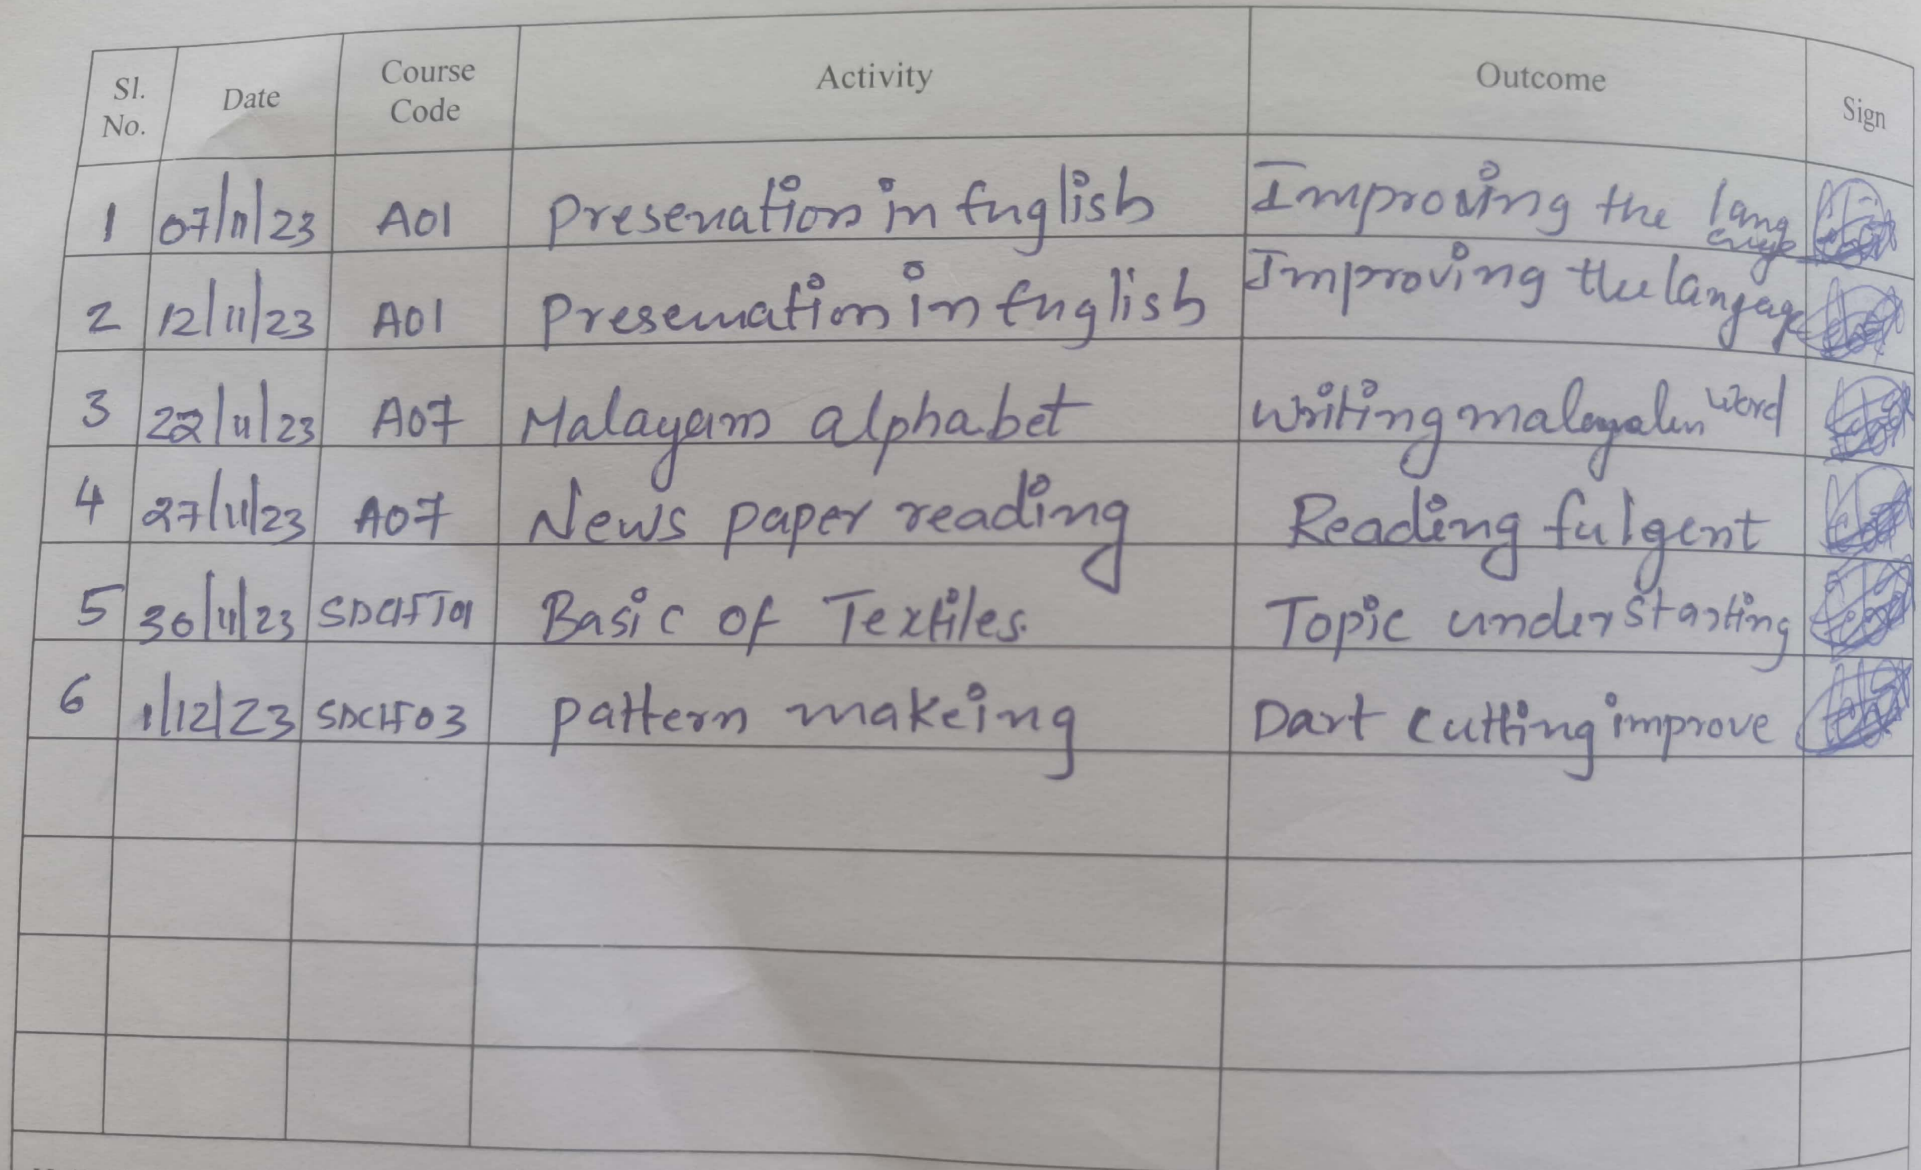 Sl. No. Date Course Code Activity Outcome Sign
1 07/11/23 A01 Presenation in English Improving the language
2 12/11/23 A01 Presemation in English Improving the langage
3 22/11/23 A07 Malayam alphabet Writing malayalm word
4 27/11/23 A07 News paper reading Reading fulgent
5 30/11/23 Basic of Textiles. Topic understarting
6 1/12/23 Pattern makeing Dart cutting improve